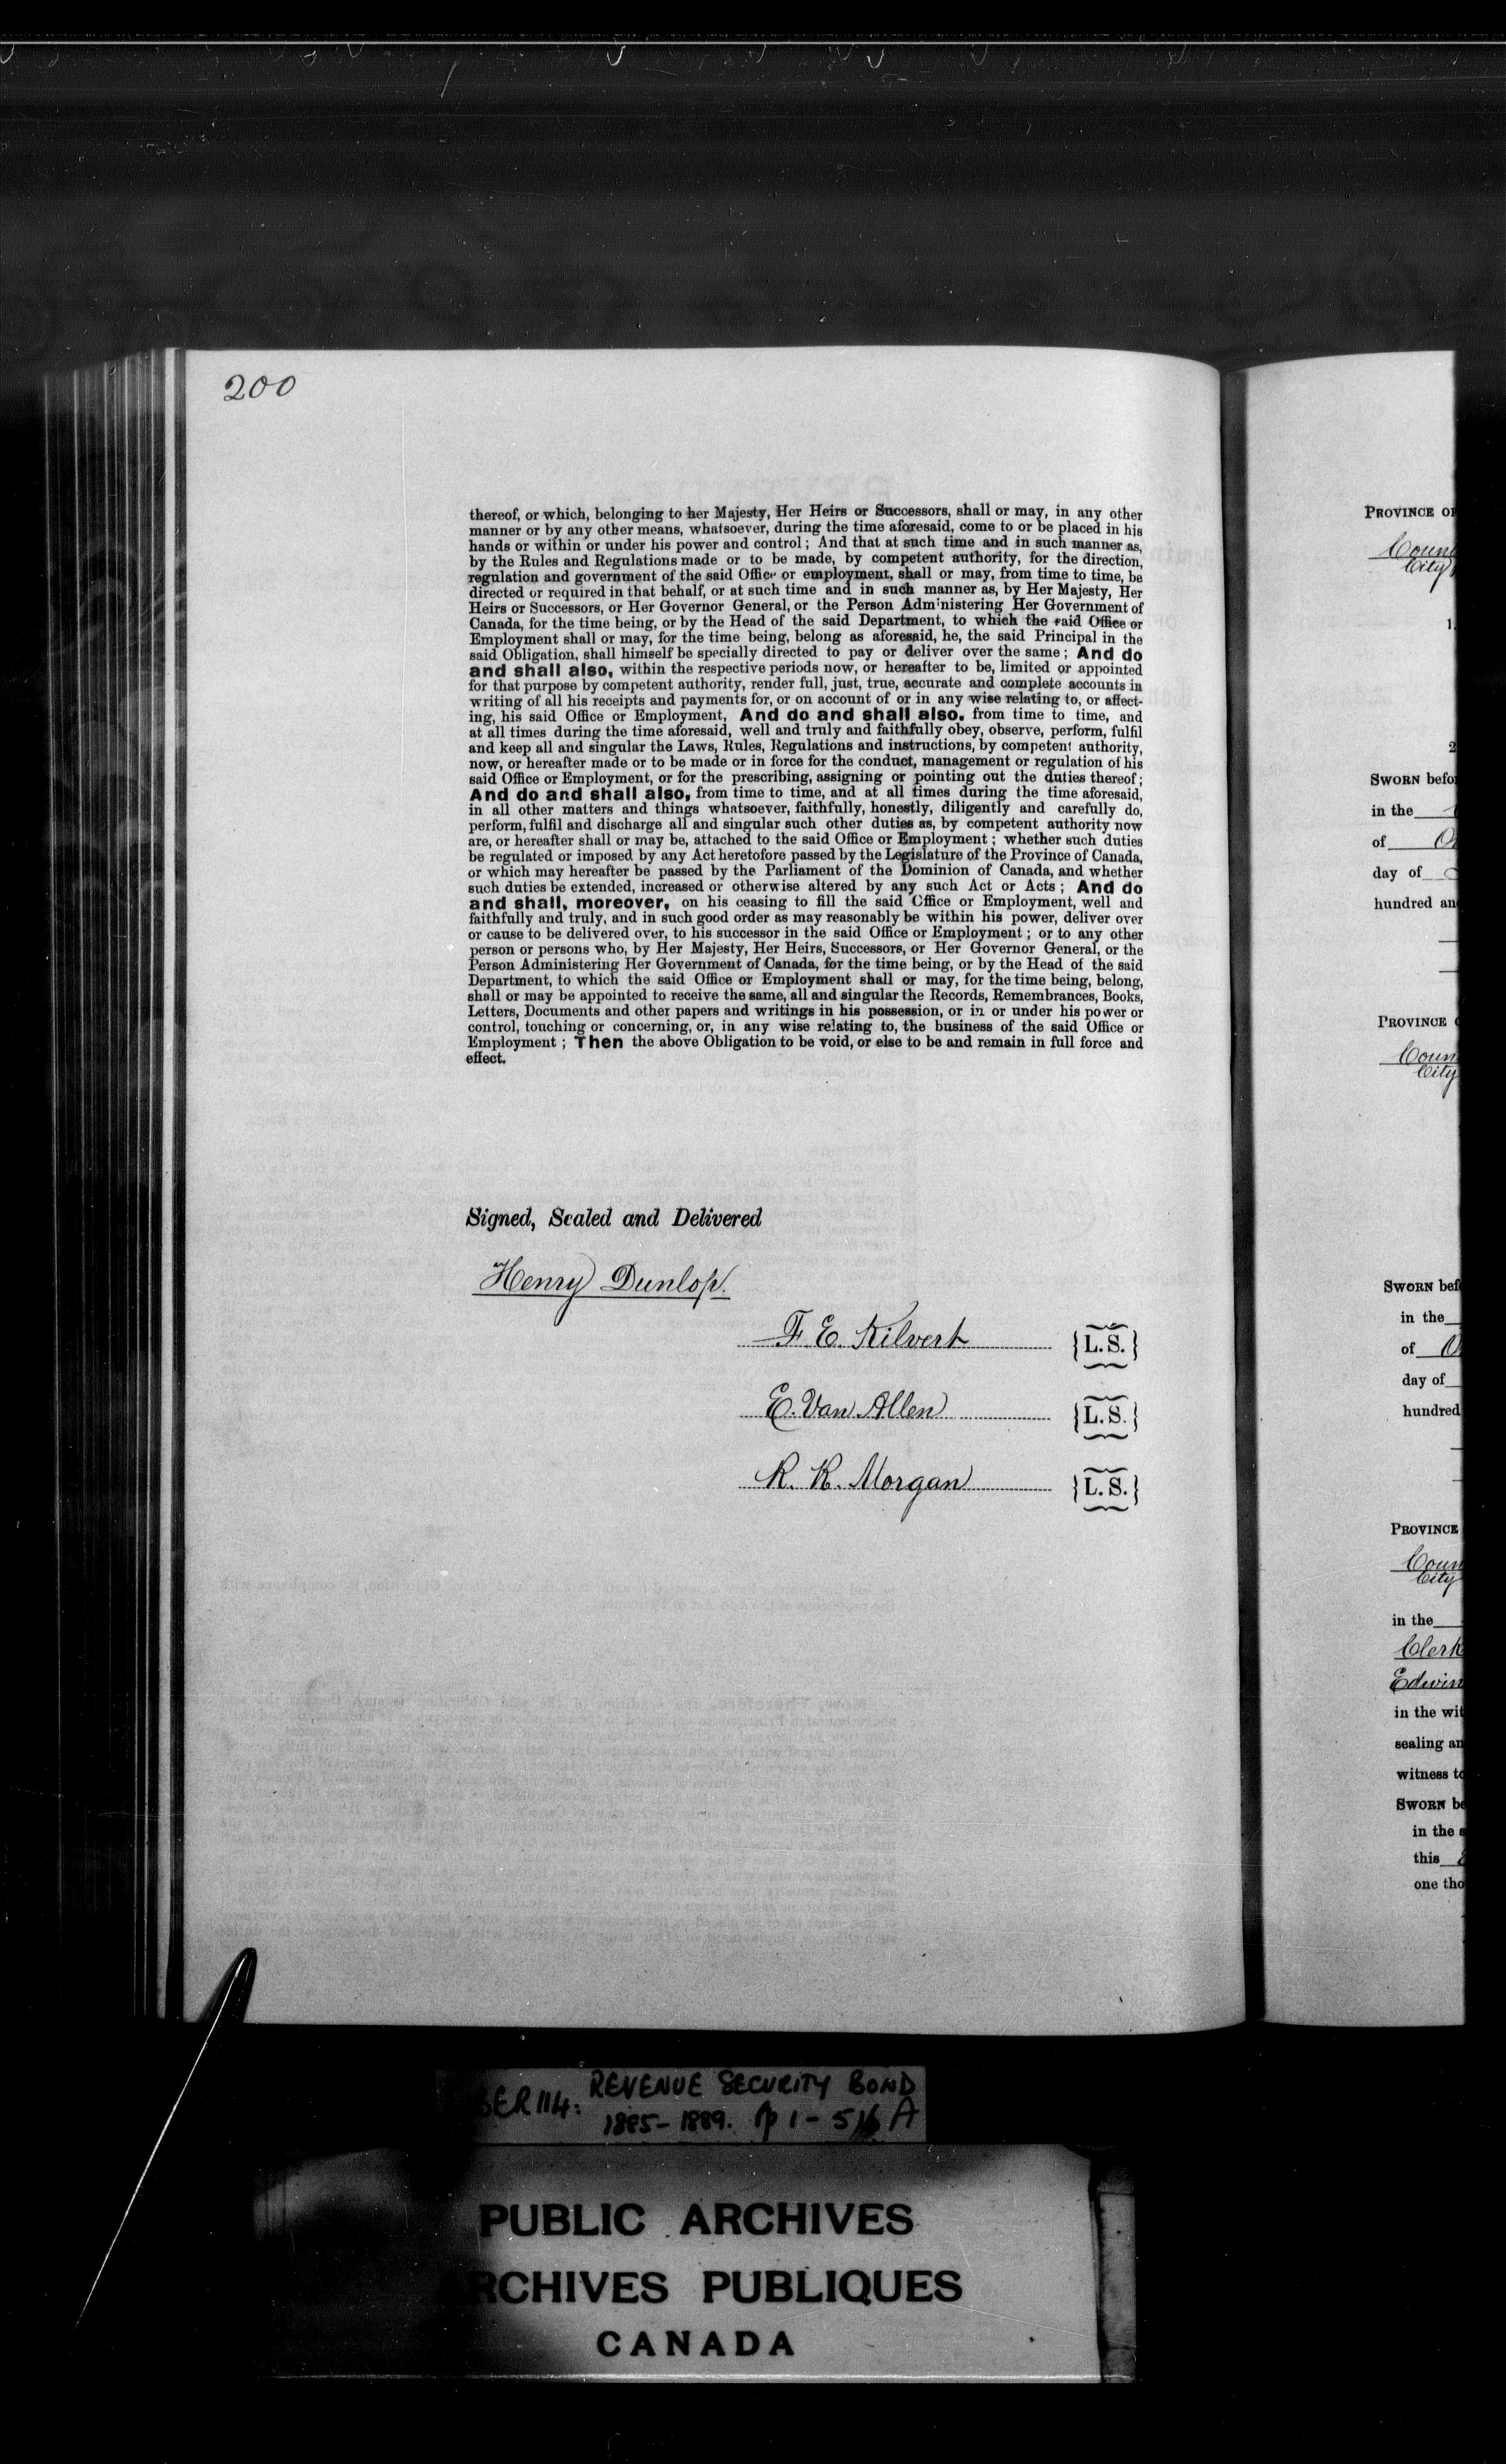 200
thereof, or which, belonging to her Majesty, Her Heirs or Successors, shall or may, in any other
manner or by any other means, whatsoever, during the time aforesaid, come to or be placed in his
hands or within or under his power and control; And that at such time and in such manner as,
by the Rules and Regulations made or to be made, by competent authority, for the direction,
regulation and government of the said Office or employment, shall or may, from time to time, be
directed or required in that behalf, or at such time and in such manner as, by Her Majesty, Her
Heirs or Successors, or Her Governor General, or the Person Administering Her Government of
Canada, for the time being, or by the Head of the said Department, to which the said Office or
Employment shall or may, for the time being, belong as aforesaid, he, the said Principal in the
said Obligation, shall himself be specially directed to pay or deliver over the same; And do
and shall also, within the respective periods now, or hereafter to be, limited or appointed
for that purpose by competent authority, render full, just, true, accurate and complete accounts in
writing of all his receipts and payments for, or on account of or in any wise relating to, or affect-
ing, his said Office or Employment, And do and shall also, from time to time, and
at all times during the time aforesaid, well and truly and faithfully obey, observe, perform, fulfil
and keep all and singular the Laws, Rules, Regulations and instructions, by competent authority,
now, or hereafter made or to be made or in force for the conduct, management or regulation of his
said Office or Employment, or for the prescribing, assigning or pointing out the duties thereof;
And do and shall also, from time to time, and at all times during the time aforesaid,
in all other matters and things whatsoever, faithfully, honestly, diligently and carefully do,
perform, fulfil and discharge all and singular such other duties as, by competent authority now
are, or hereafter shall or may be, attached to the said Office or Employment; whether such duties
be regulated or imposed by any Act heretofore passed by the Legislature of the Province of Canada,
or which may hereafter be passed by the Parliament of the Dominion of Canada, and whether
such duties be extended, increased or otherwise altered by any such Act or Acts; And do
and shall, moreover, on his ceasing to fill the said Office or Employment, well and
faithfully and truly, and in such good order as may reasonably be within his power, deliver over
or cause to be delivered over, to his successor in the said Office or Employment; or to any other
person or persons who, by Her Majesty, Her Heirs, Successors, or Her Governor General, or the
Person Administering Her Government of Canada, for the time being, or by the Head of the said
Department, to which the said Office or Employment shall or may, for the time being, belong,
shall or may be appointed to receive the same, all and singular the Records, Remembrances, Books,
Letters, Documents and other papers and writings in his possession, or in or under his power or
control, touching or concerning, or, in any wise relating to, the business of the said Office or
Employment; Then the above Obligation to be void, or else to be and remain in full force and
effect.
Signed, Sealed and Delivered
Henry Dunlop.
F. E. Kilvert {L.S.}
E. Van Allen {L.S.}
R. R. Morgan {L.S.}
PROVINCE
City
1.
2
SWORN
in the
of
day of
hundred
PROVINCE
City
SWORN
in the
of
day of
hundred
PROVINCE
City
in the
Clerk
Edwin
in the
sealing
witness
SWORN
in the
this
one
114: REVENUE SECURITY BOND
1885-1889. p 1-516 A
PUBLIC ARCHIVES
ARCHIVES PUBLIQUES
CANADA